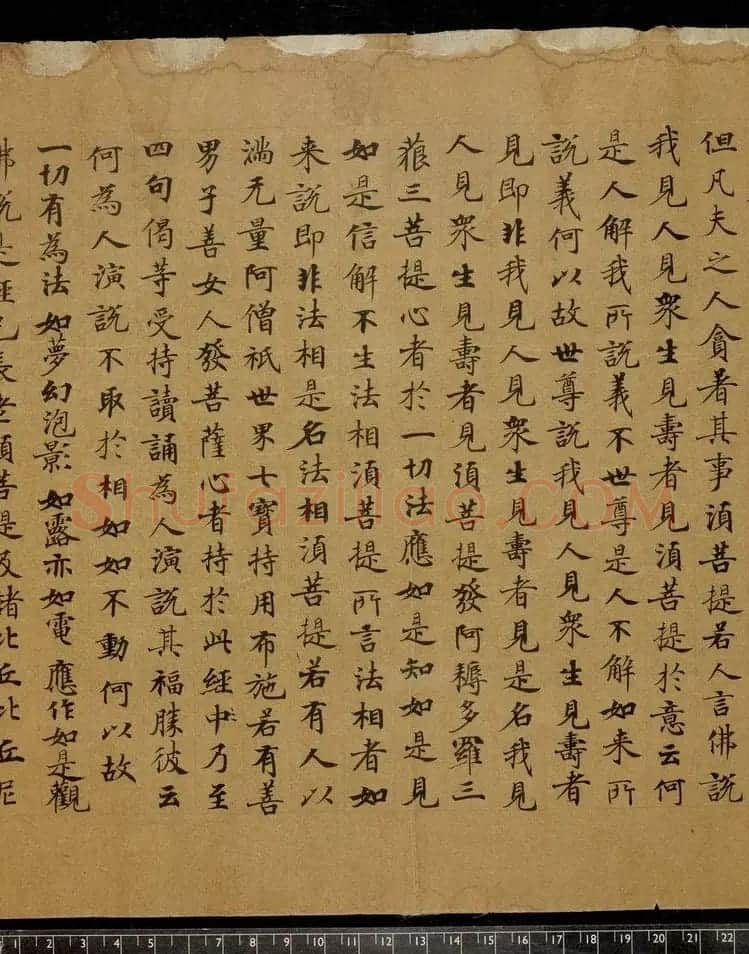 但凡夫之人貪著其事須菩提若人言佛說
我見人見衆生見壽者見須菩提於意云何
是人解我所說義不世尊是人不解如来所
說義何以故世尊說我見人見衆生見壽者
見即非我見人見衆生見壽者見是名我見
人見衆生見壽者見須菩提發阿耨多羅三
藐三菩提心者於一切法應如是知如是見
如是信解不生法相須菩提所言法相者如
来說即非法相是名法相須菩提若有人以
滿无量阿僧祇世界七寶持用布施若有善
男子善女人發菩薩心者持於此經中乃至
四句偈等受持讀誦為人演說其福勝彼云
何為人演說不取於相如如不動何以故
一切有為法如夢幻泡影如露亦如電應作如是觀
佛說是經已長老須菩提及諸比丘比丘尼
Shufaziliao.COM
1 2 3 4 5 6 7 8 9 10 11 12 13 14 15 16 17 18 19 20 21 22